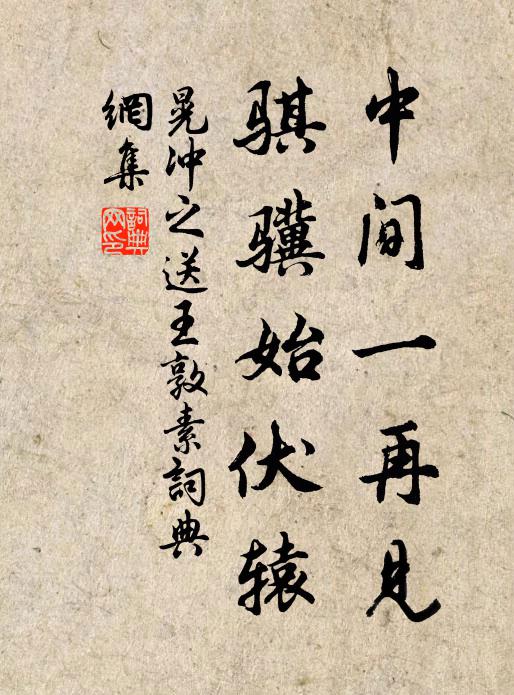 中间一再见
骐骥始伏辕
晁冲之送王敦素詞典
網集
詞典网印